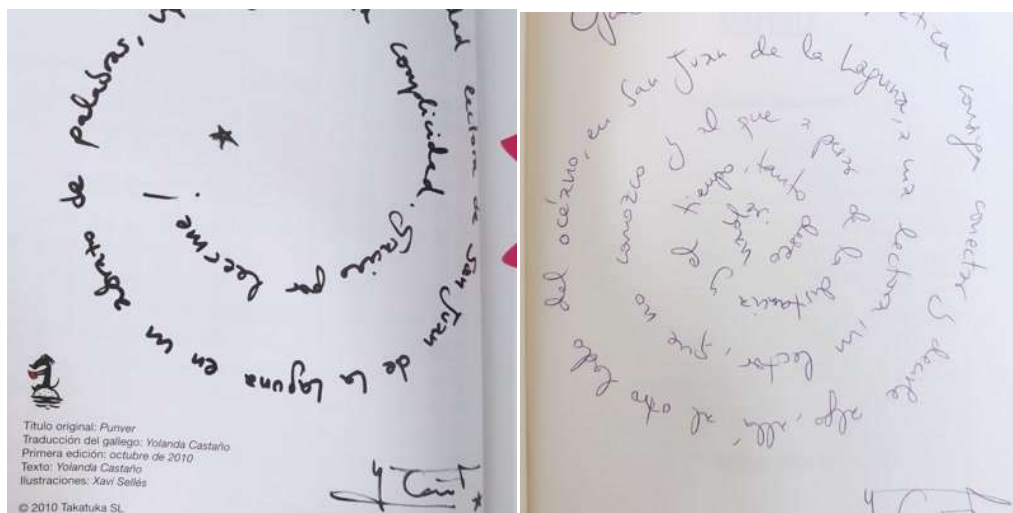 lectora de San Juan de la Laguna en un
de palabras,
complicidad. Gracias por leerme!
Título original: Punver
Traducción del gallego: Yolanda Castaño
Primera edición: octubre de 2010
Texto: Yolanda Castaño
Ilustraciones: Xavi Sellés
© 2010 Takatuka SL
consiga conectar y decirle algo, allá, al otro lado del océano, en San Juan de la Laguna, a una lectora, un lector, que no conozco y al que a pesar de la distancia y el tiempo, tanto deseo